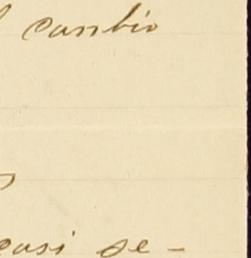 cambio
casi se-